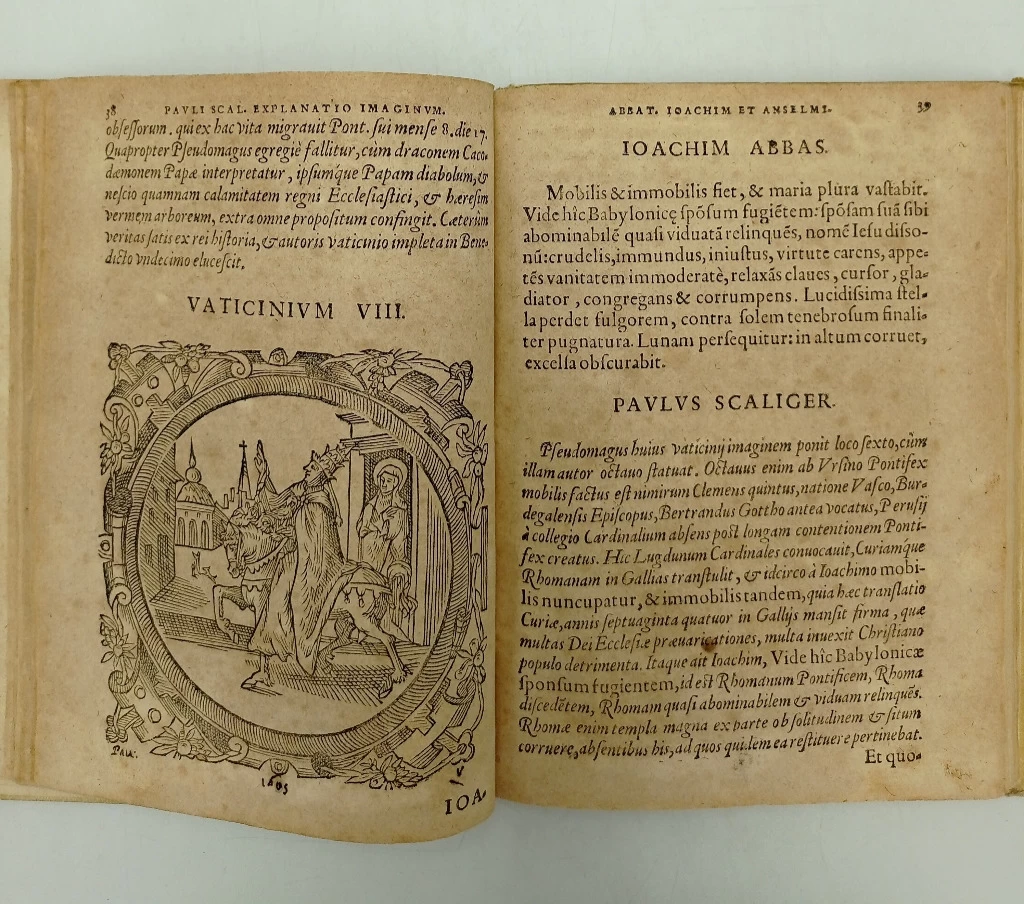 38 PAVLI SCAL. EXPLANATIO IMAGINVM.
obſeſſorum. qui ex hac vita migrauit Pont. ſui menſe 8. die 17.
Quapropter Pſeudomagus egregiè fallitur, cùm draconem Caco-
dæmonem Papæ interpretatur, ipſumque Papam diabolum, &
neſcio quamnam calamitatem regni Eccleſiaſtici, & hæreſim
vermem arboreum, extra omne propoſitum confingit. Cæterùm
veritas ſatis ex rei hiſtoria, & autoris vaticinio impleta in Bene-
dicto vndecimo eluceſcit.
VATICINIVM VIII.
IOA-
ABBAT. IOACHIM ET ANSELMI. 39
IOACHIM ABBAS.
Mobilis & immobilis fiet, & maria plura vaſtabit.
Vide hîc Babylonicę ſpõſum fugiẽtem: ſpõſam ſuã ſibi
abominabilẽ quaſi viduatã relinquẽs, nomẽ Ieſu diſſo-
nũ: crudelis, immundus, iniuſtus, virtute carens, appe-
tẽs vanitatem immoderatè, relaxãs claues, curſor, gla-
diator, congregans & corrumpens. Lucidiſſima ſtel-
la perdet fulgorem, contra ſolem tenebroſum finali-
ter pugnatura. Lunam perſequitur: in altum corruet,
excelſa obſcurabit.
PAVLVS SCALIGER.
Pſeudomagus huius vaticinij imaginem ponit loco ſexto, cùm
illam autor octauo ſtatuat. Octauus enim ab Vrſino Pontifex
mobilis factus eſt nimirum Clemens quintus, natione Vaſco, Bur-
degalenſis Epiſcopus, Bertrandus Gottho antea vocatus, Peruſij
à collegio Cardinalium abſens poſt longam contentionem Ponti-
fex creatus. Hic Lugdunum Cardinales conuocauit, Curiamque
Rhomanam in Gallias tranſtulit, & idcirco à Ioachimo mobi-
lis nuncupatur, & immobilis tandem, quia hæc tranſlatio
Curiæ, annis ſeptuaginta quatuor in Gallijs manſit firma, quæ
multas Dei Eccleſiæ præuaricationes, multa inuexit Chriſtiano
populo detrimenta. Itaque ait Ioachim, Vide hîc Babylonicæ
ſponſum fugientem, id eſt Rhomanum Pontificem, Rhoma
diſcedẽtem, Rhomam quaſi abominabilem & viduam relinquẽs.
Rhomæ enim templa magna ex parte ob ſolitudinem & ſitum
corruere, abſentibus his, ad quos quidem ea reſtituere pertinebat.
Et quo-